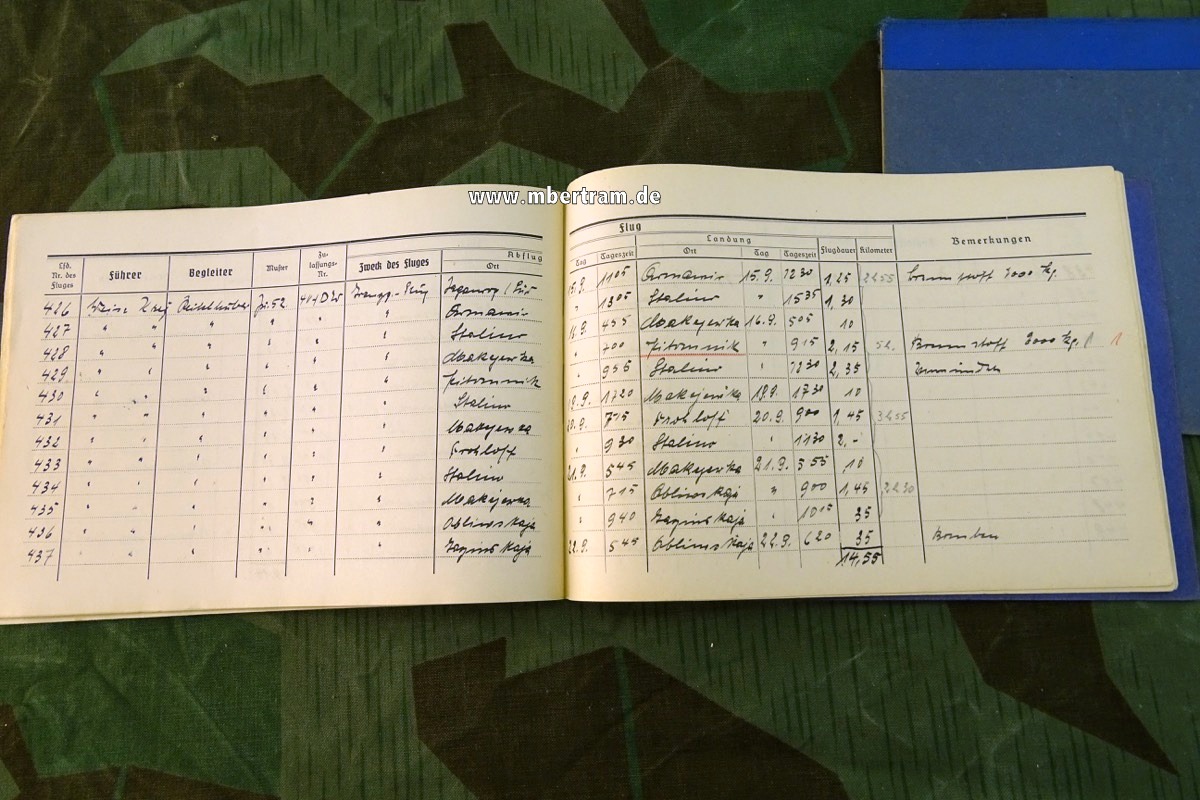 www.mbertram.de
Flug
Abflug Landung
Lfd. Nr. des Fluges Führer Begleiter Muster Zulassungs-Nr. Zweck des Fluges Ort Tag Tageszeit Ort Tag Tageszeit Flugdauer Kilometer Bemerkungen
426 Ju.52 15.9. 1105 Armavir 15.9. 1230 1,25 3000 kg.
427 " " " " " " Armavir " 1305 Stalino " 1535 1,30
428 " " " " " " Stalino 16.9. 455 Makejewka 16.9. 505 10
429 " " " " " " Makejewka " 700 Pitomnik " 915 2,15 Brennstoff 2000 kg. 1
430 " " " " " " Pitomnik " 955 Stalino " 1230 2,35 Verwundete
431 " " " " " " Stalino 19.9. 1720 Makejewka 19.9. 1730 10
432 " " " " " " Makejewka 20.9. 715 Froloff 20.9. 900 1,45 3255
433 " " " " " " Froloff " 930 Stalino " 1130 2,-
434 " " " " " " Stalino 21.9. 545 Makejewka 21.9. 555 10
435 " " " " " " Makejewka " 715 Obliwskaja " 900 1,45 3230
436 " " " " " " Obliwskaja " 940 " 1015 35
437 " " " " " " 22.9. 545 Obliwskaja 22.9. 620 35 Bomben
14,55